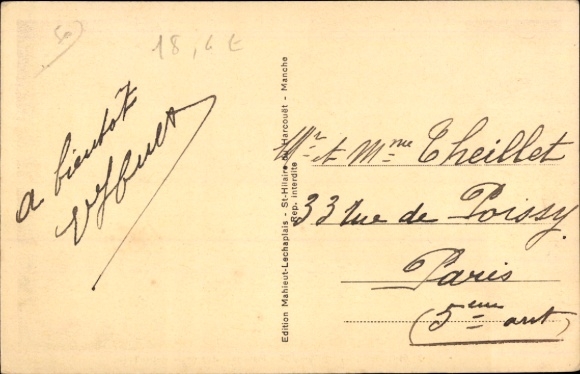 50
18,6 E
a bientôt
Mr et Mme Theillet
33 Rue de Poissy
Paris
(5eme arrt)
Edition Mahieut-Lechaplais - St-Hilaire du Harcouët - Manche
Rep. interdite